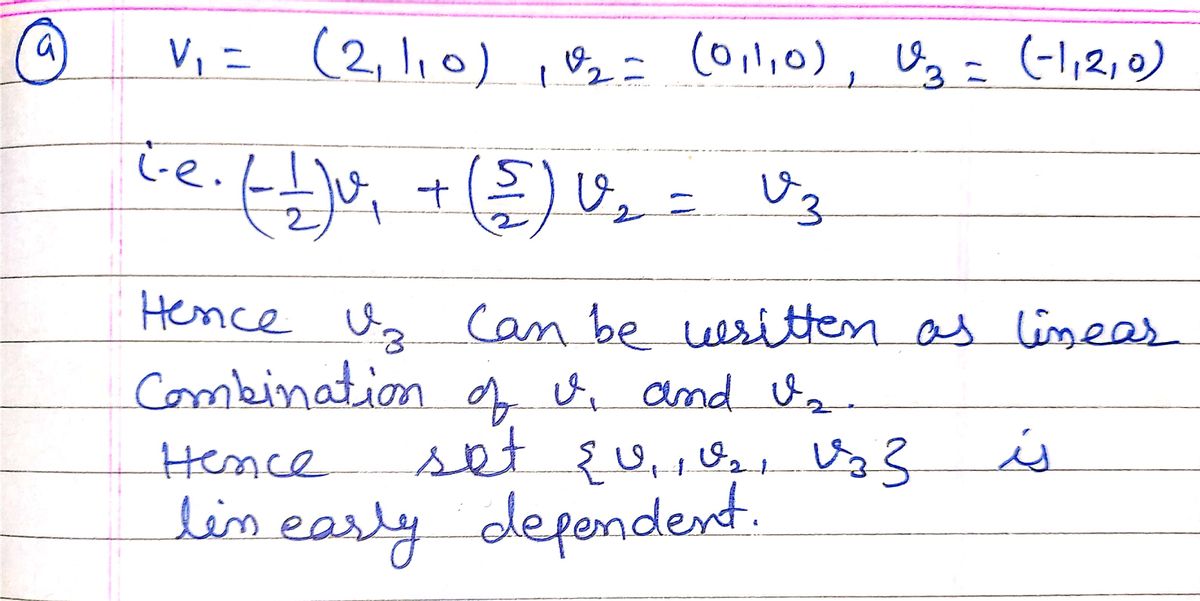 (a) V₁ = (2,1,0) , v₂ = (0,1,0), v₃ = (-1,2,0)
i-e. (-1/2)v₁ + (5/2) v₂ = v₃
Hence v₃ can be written as linear
Combination of v₁ and v₂.
Hence set {v₁, v₂, v₃} is
linearly dependent.